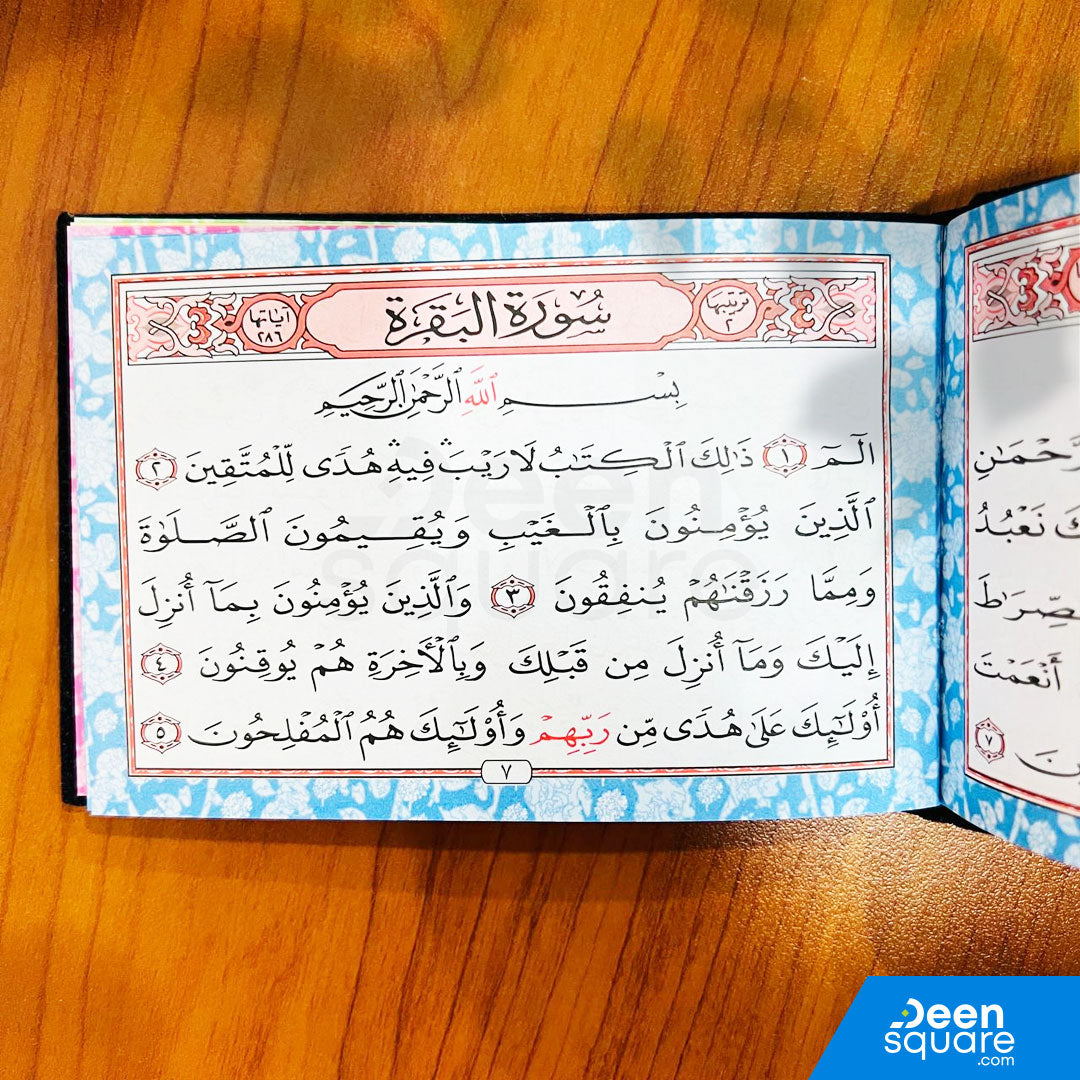 ترتيبها
٢
سُورَةُ البَقَرَةِ
آيَاتها
٢٨٦
بِسْمِ ٱللَّهِ ٱلرَّحْمَٰنِ ٱلرَّحِيمِ
الٓمٓ ١ ذَٰلِكَ ٱلْكِتَٰبُ لَا رَيْبَ ۛ فِيهِ ۛ هُدًى لِّلْمُتَّقِينَ ٢
ٱلَّذِينَ يُؤْمِنُونَ بِٱلْغَيْبِ وَيُقِيمُونَ ٱلصَّلَوٰةَ
وَمِمَّا رَزَقْنَٰهُمْ يُنفِقُونَ ٣ وَٱلَّذِينَ يُؤْمِنُونَ بِمَآ أُنزِلَ
إِلَيْكَ وَمَآ أُنزِلَ مِن قَبْلِكَ وَبِٱلْأَخِرَةِ هُمْ يُوقِنُونَ ٤
أُوْلَٰٓئِكَ عَلَىٰ هُدًى مِّن رَّبِّهِمْ وَأُوْلَٰٓئِكَ هُمُ ٱلْمُفْلِحُونَ ٥
٧
نَعْبُدُ
أَنْعَمْتَ
٧
Deen
square
Deen
square
.com